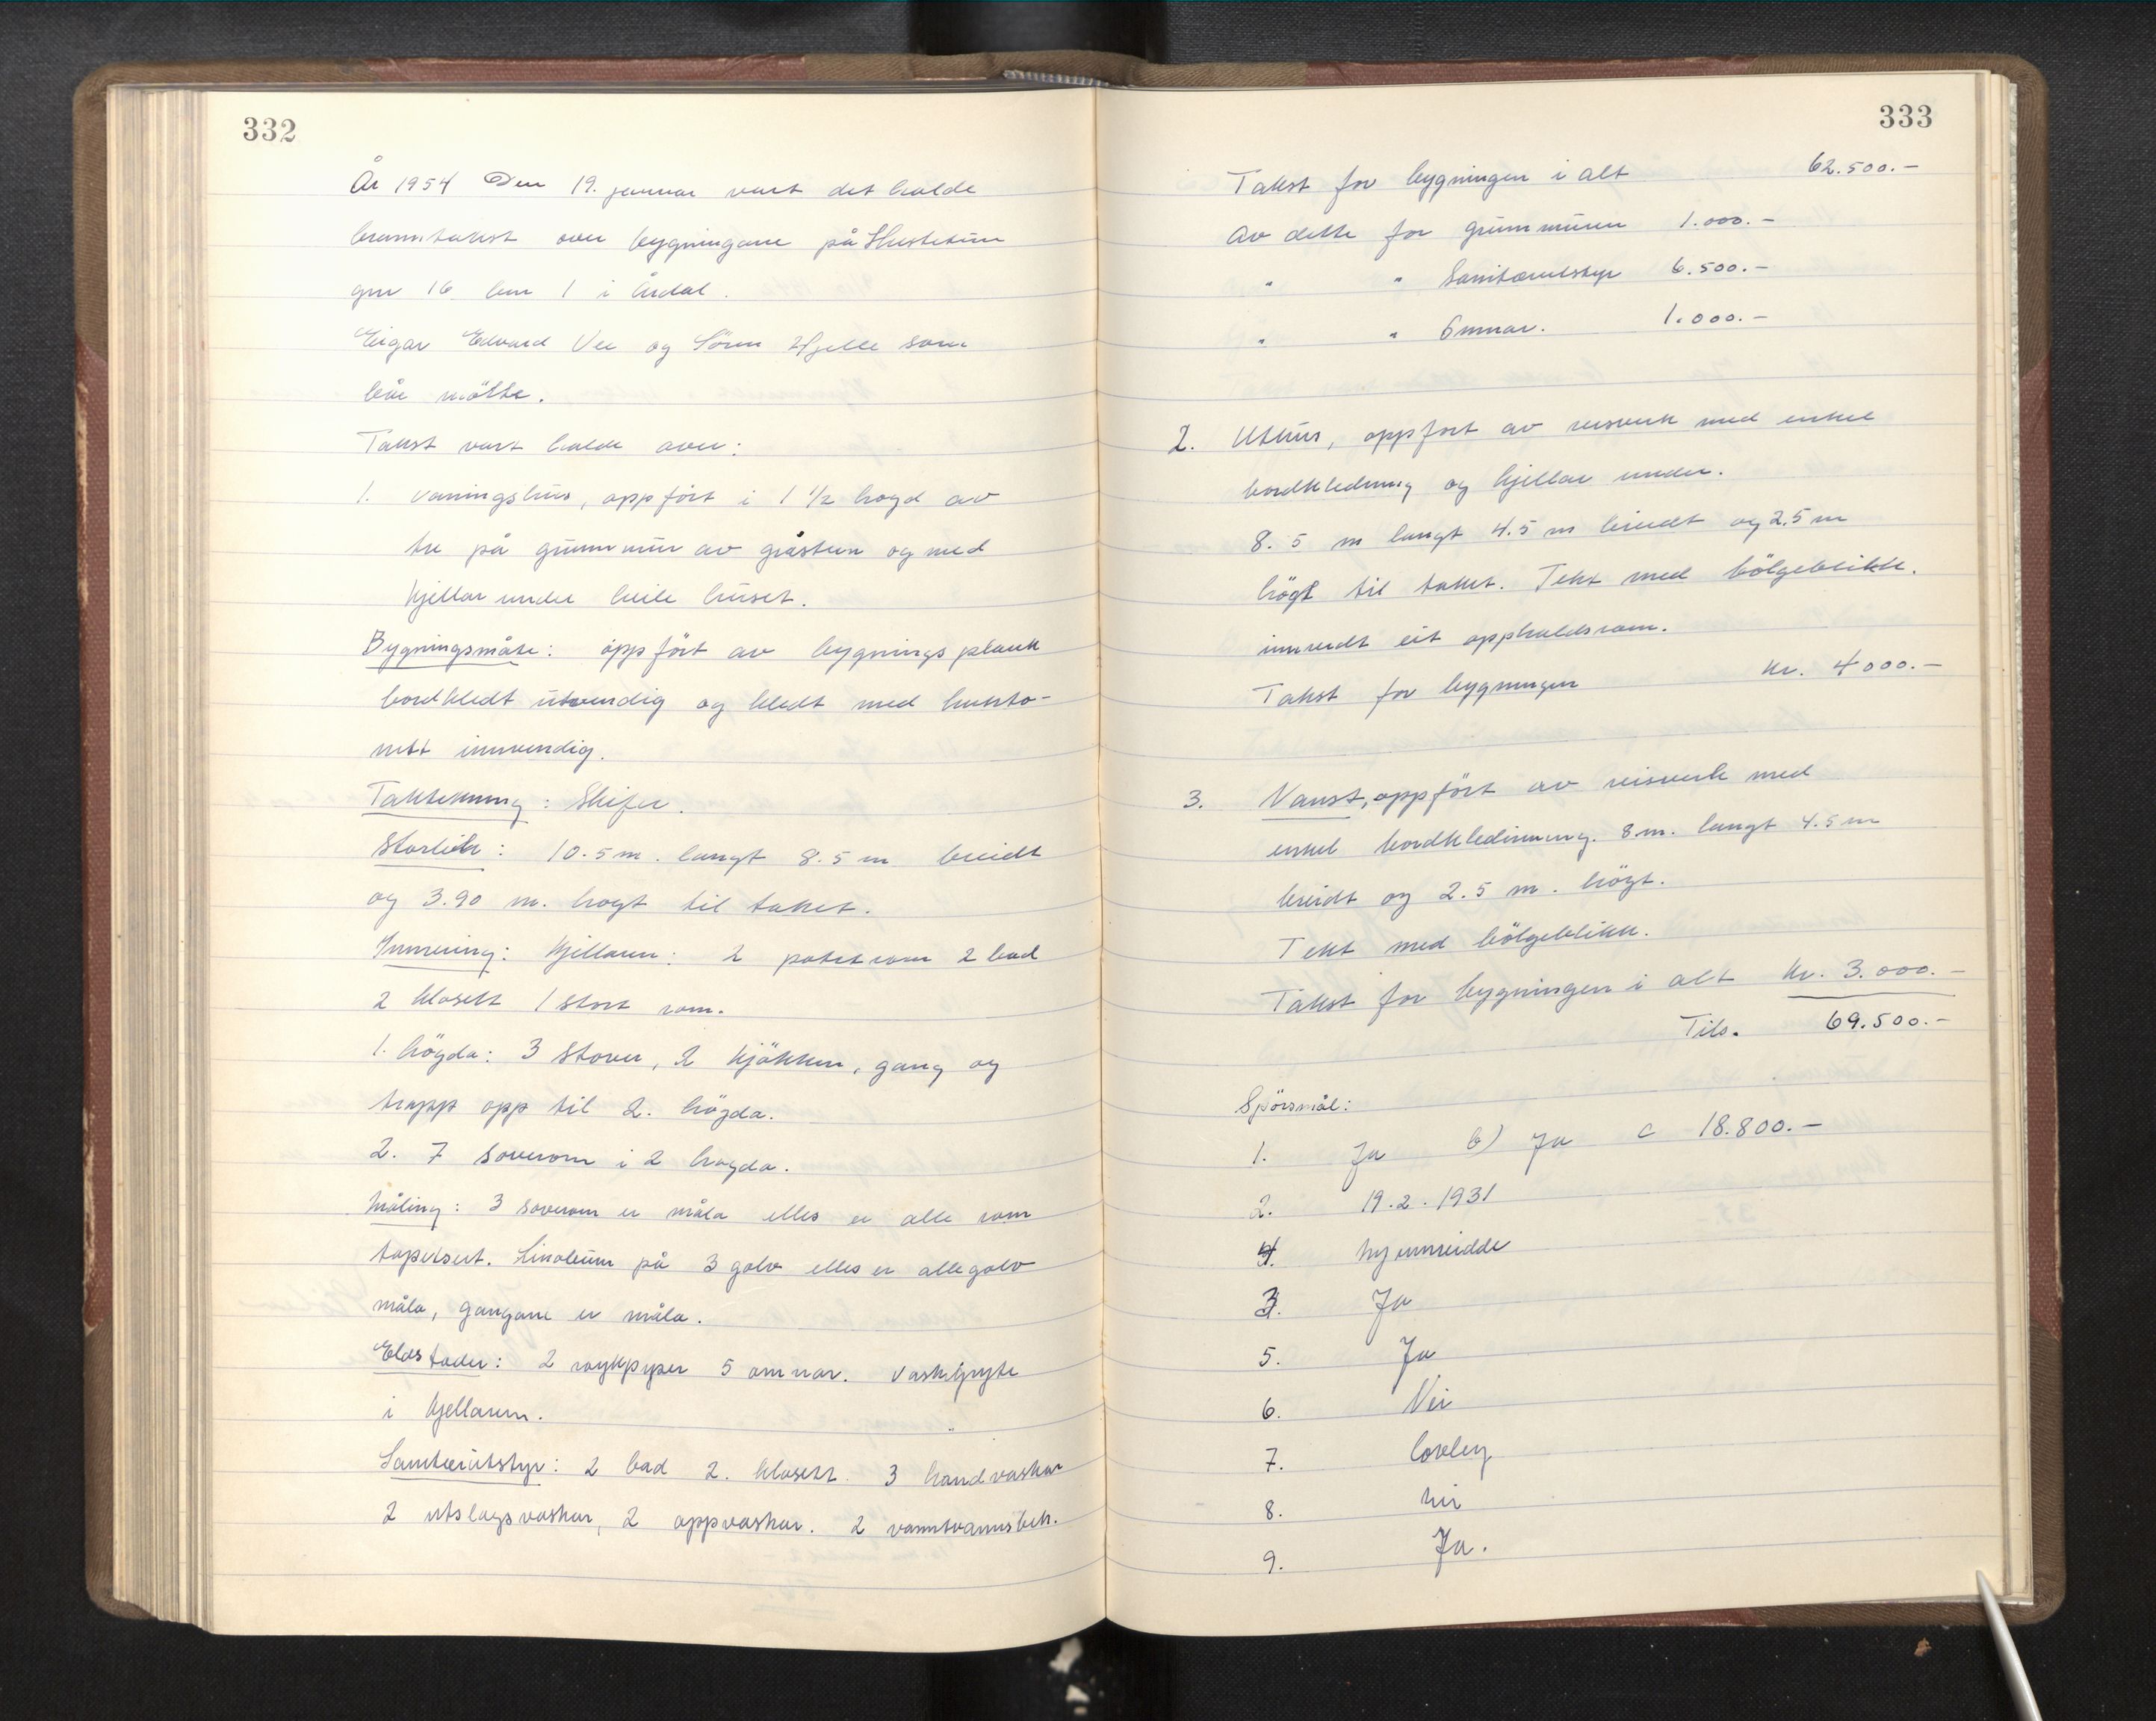 332
År 1954 Den 19. januar vart det halde
branntakst over bygningane på Hustetun
gnr 16 bnr 1 i Årdal.
Eigar Edvard Vee og Sören Hjelle som
båe mötte.
Takst vart halde over:
1. Vaningshus, oppfört i 1 1/2 hogd av
tre på grunnmur av gråstein og med
kjellar under heile huset.
Bygningsmåte: oppfört av bygningsplank
bordkledt utvendig og kledt med hunto-
nitt innvendig.
Taktekning: Skifer.
Storleik: 10.5 m. langt 8.5 m breidt
og 3.90 m. hogt til taket.
Innreiing: Kjellaren: 2 potetrom 2 bad
2 klosett 1 stort rom.
1. högda: 3 stover, 2 kjökken, gang og
trapp opp til 2. högda.
2. 7 soverom i 2 hogda.
Måling: 3 soverom er måla elles er alle rom
tapetsert. Linoleum på 3 golv elles er alle golv
måla, gangane er måla.
Eldstader: 2 roykpyper 5 omnar. Vaskegryte
i kjellaren.
Sanitærutstyr: 2 bad 2. klosett. 3 handvaskar
2 utslagsvaskar, 2 oppvaskar. 2 varmtvannsbeh.
333
Takst for bygningen i alt 62.500.-
Av dette for grunnmuren 1.000.-
" " Sanitærutstyr 6.500.-
" " Omnar. 1.000.-
2. Uthus, oppfort av reisverk med enkel
bordkledning og kjellar under.
8.5 m langt 4.5 m breidt og 2.5 m
högt til taket. Tekt med bölgeblikk.
innreidt eit oppholdsrom.
Takst for bygningen kr. 4000.-
3. Naust, oppfört av reisverk med
enkel bordkledinning. 8 m. langt 4.5 m
breidt og 2.5 m. högt.
Tekt med bölgeblikk.
Takst for bygningen i alt kr. 3.000.-
Tils. 69.500.-
Spörsmål:
1. Ja b) Ja c 18.800.-
2. 19.2.1931
4. nyinnreidde
3. Ja
5. Ja
6. Nei
7.
8. nei
9. Ja.